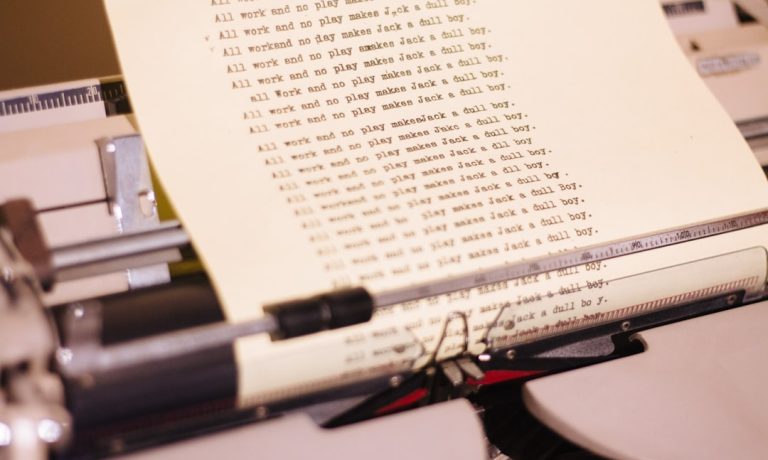 All work and no play makes Jack a dull boy.
All work and no play makes J ck a dull boy.
All work and no play makes Jack a dull boy.
All workand no play makes Jack a dull boy.
All work and no play makes Jack a dull boy.
All work and no play makes Jack a dull boy.
all Work and no play makes Jack a dull boy.
All work and no play makes Jack a dull boy.
All work and no play makes Jack a dull boy.
All work and no play makesJack a dull boy.
All work and no play makes Jakc a dull boy.
All work and no play makes Jack a dull boy.
All work and no play makes Jack a dll boy
All work and no play makes Jack a dull boy.
All work and no play makes Jack a dull boy.
work and no play makes Jack a dull boy.
work and no play makes Jack a dull boy.
work and no play makes Jack a dull boy.
work and no play makes Jack a dull boy.
work and no play makes Jack a dull boy.
All work and makes Jack a dull bo y.
All work Jack a dull